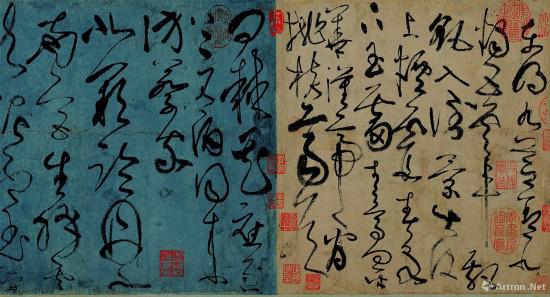 東明九芝蓋北
燭五雲車飄
飖入倒景出沒
上煙霞春泉
下玉霤青鳥向金
華漢帝看
桃核齊侯
問棘花應逐
上元酒同來
訪蔡家
北闕臨丹水
南宮生絳雲
龍泥印玉
Artron.Net